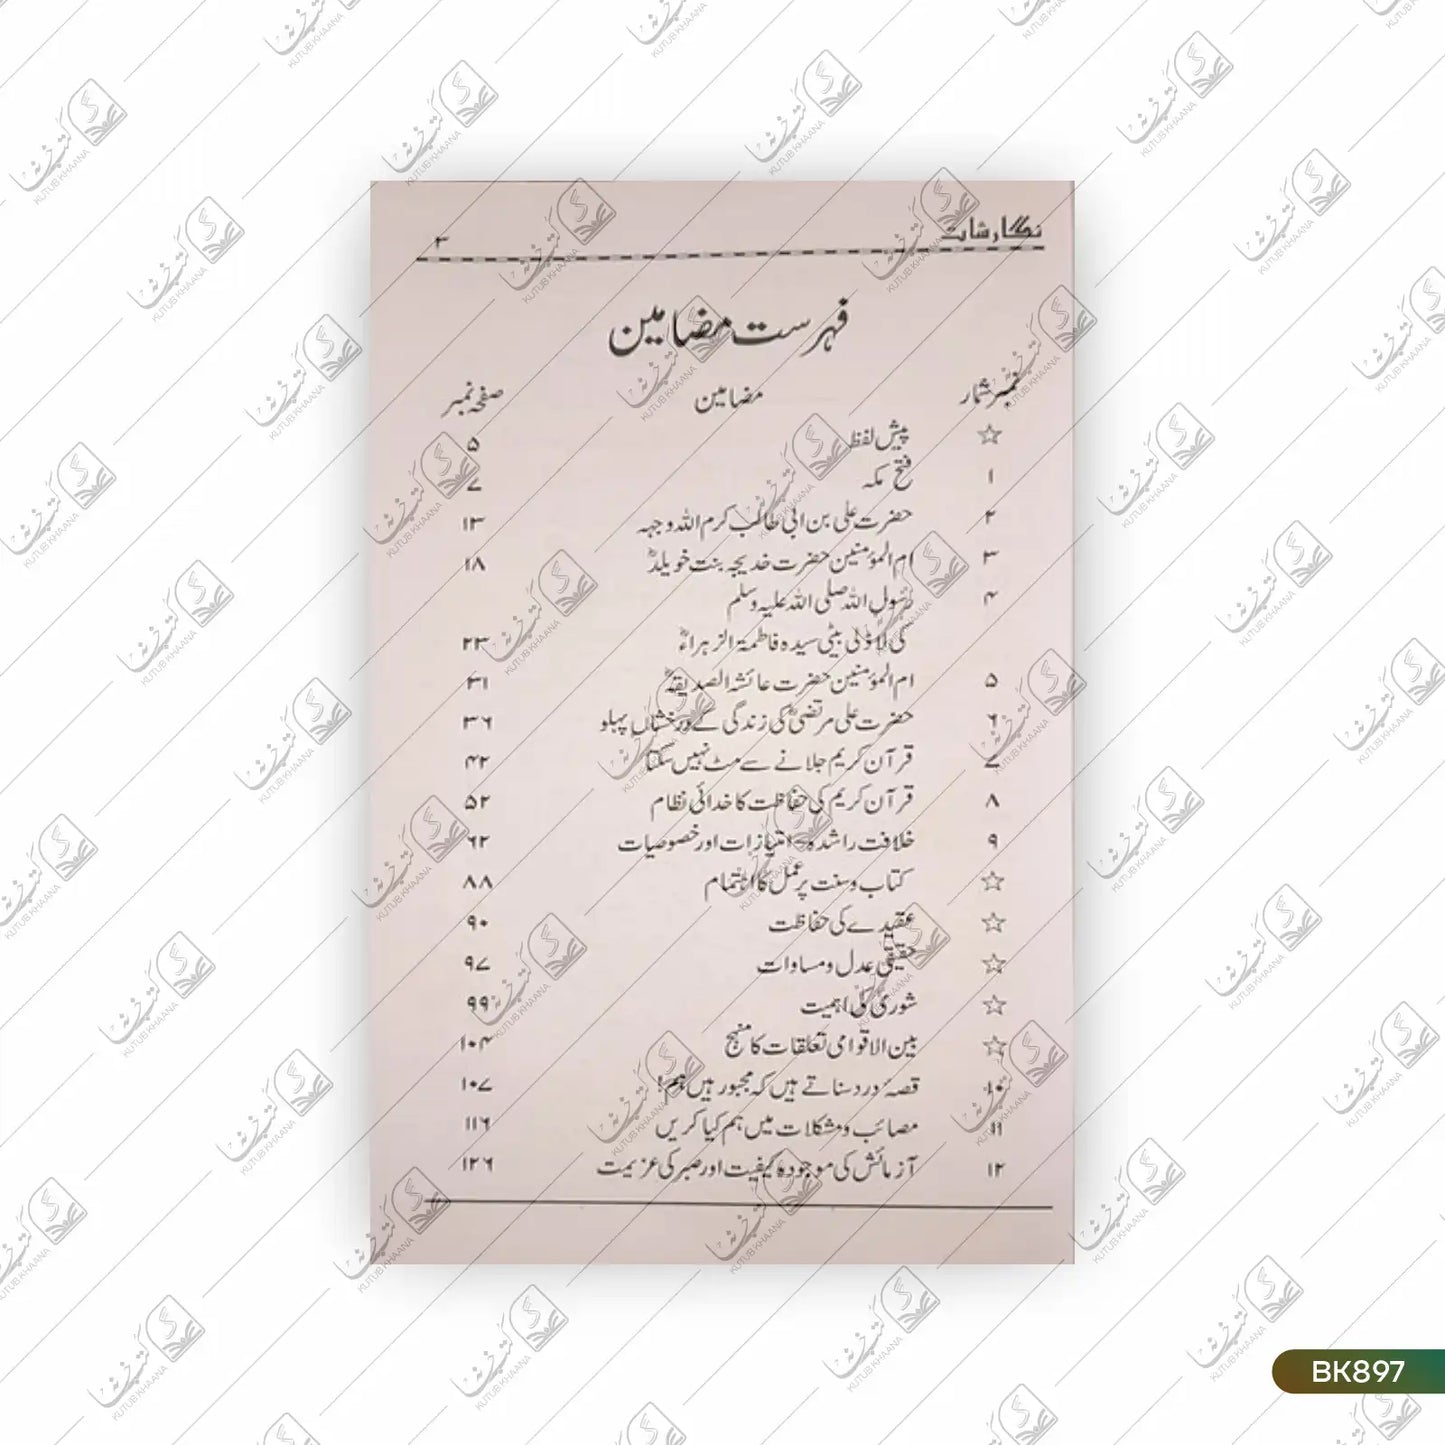 نگارشات ۳
فہرست مضامین
نمبر شمار مضامین صفحہ نمبر
☆ پیش لفظ ۵
۱ فتح مکہ ۷
۲ حضرت علی بن ابی طالب کرم اللہ وجہہ ۱۳
۳ ام المؤمنین حضرت خدیجہ بنت خویلدؓ ۱۸
۴ رسول اللہ صلی اللہ علیہ وسلم
کی لاڈلی بیٹی سیدہ فاطمۃ الزہراءؓ ۲۳
۵ ام المؤمنین حضرت عائشہ الصدیقہؓ ۳۱
۶ حضرت علی مرتضیؓ کی زندگی کے درخشاں پہلو ۳۶
۷ قرآن کریم جلانے سے مٹ نہیں سکتا ۴۲
۸ قرآن کریم کی حفاظت کا خدائی نظام ۵۲
۹ خلافت راشدہ۔ امتیازات اور خصوصیات ۶۲
☆ کتاب و سنت پر عمل کا اہتمام ۸۸
☆ عقیدے کی حفاظت ۹۰
☆ حقیقی عدل و مساوات ۹۷
☆ شوریٰ کی اہمیت ۹۹
☆ بین الاقوامی تعلقات کا منہج ۱۰۴
۱۰ قصۂ درد سناتے ہیں کہ مجبور ہیں ہم! ۱۰۷
۱۱ مصائب و مشکلات میں ہم کیا کریں ۱۱۶
۱۲ آزمائش کی موجودہ کیفیت اور صبر کی عزیمت ۱۲۶
کتب خانہ
KUTUB KHAANA
BK897